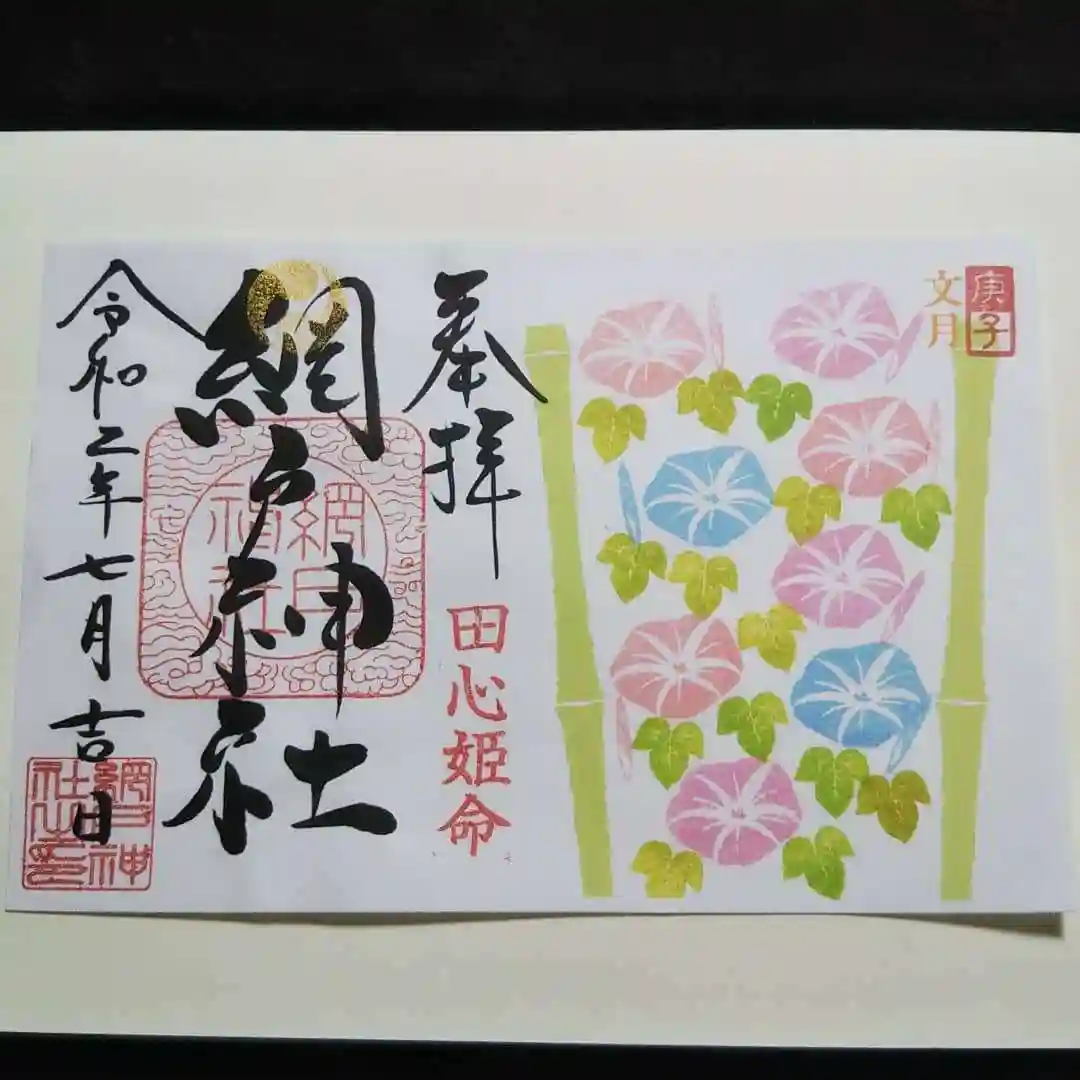 庚子
文月
奉拝
田心姫命
網戸神社
網戸神社
令和二年七月吉日
網戸神社之印